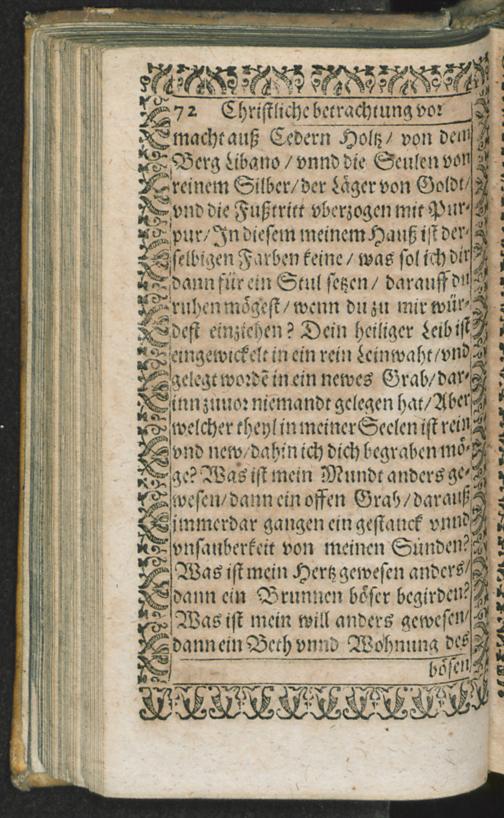 72 Christliche betrachtung vor
macht auß Cedern Holtz / von dem
Berg Libano / vnnd die Seulen von
reinem Silber / der Läger von Goldt /
vnd die Fußtritt vberzogen mit Pur-
pur / In diesem meinem Hauß ist der-
selbigen Farben keine / was sol ich dir
dann für ein Stul setzen / darauff du
ruhen mögest / wenn du zu mir wür-
dest einziehen? Dein heiliger Leib ist
eingewickelt in ein rein Leinwaht / vnd
gelegt wordẽ in ein newes Grab / dar-
inn zuuor niemandt gelegen hat / Aber
welcher theyl in meiner Seelen ist rein
vnd new / dahin ich dich begraben mö-
ge? Was ist mein Mundt anders ge-
wesen / dann ein offen Grab / darauß
jmmerdar gangen ein gestanck vnnd
vnsauberkeit von meinen Sünden?
Was ist mein Hertz gewesen anders /
dann ein Brunnen böser begirden?
Was ist mein will anders gewesen /
dann ein Beth vnnd Wohnung des
bösen